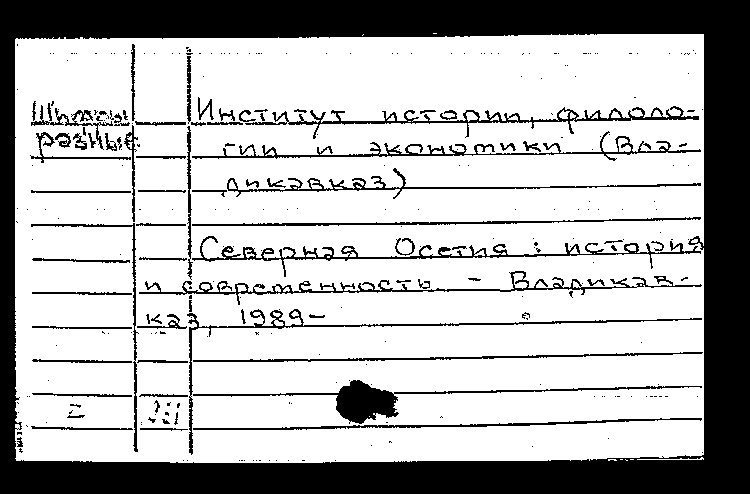 Шифры
разные
Институт истории, филоло-
гии и экономики (Вла-
дикавказ)
Северная Осетия : история
и современность. - Владикав-
каз, 1989-